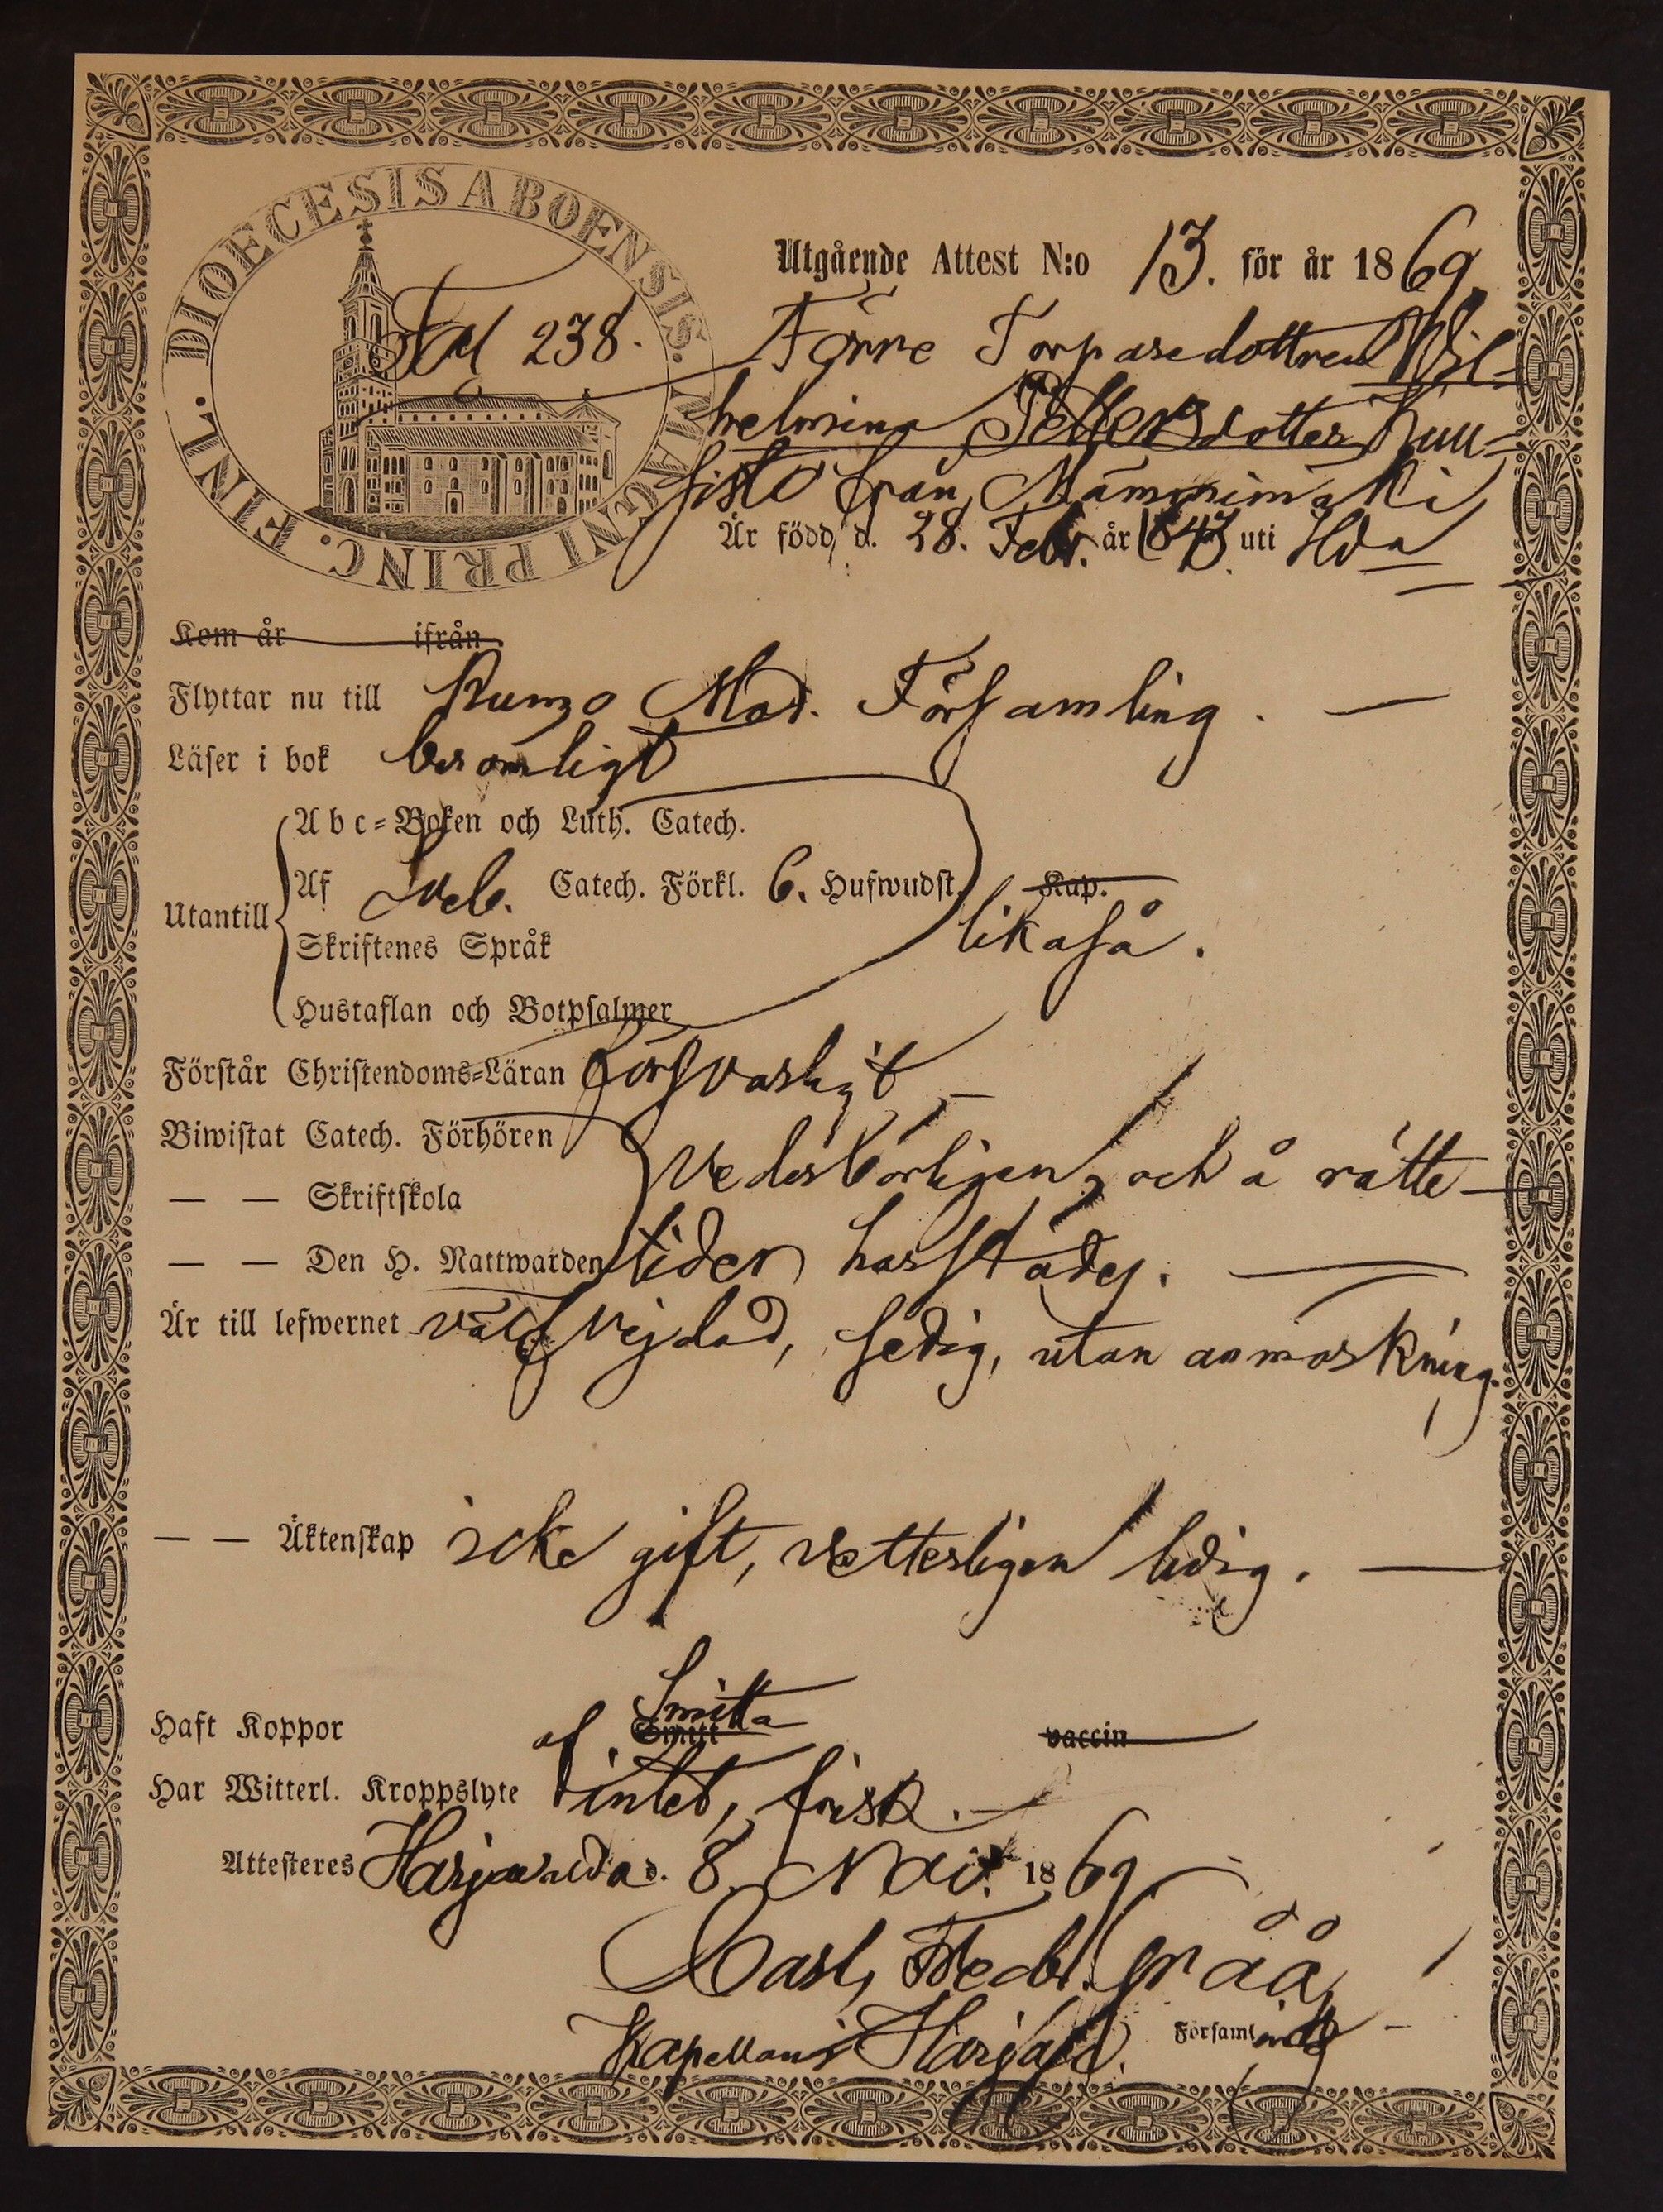 DIOECESIS ABOENSIS. MAGNI PRINC. FINL.
Utgående Attest N:o 13. för år 1869.
Fol 238.
Förre Torparedottren Wil-
helmina Pettersdotter Kuu-
sisto från Mämmimäki
Är född, d. 28. Febr. år 1843. uti Hda
Kom år ifrån
Flyttar nu till Kumo Mod. Församling. —
Läser i bok beromligt
Abc-Boken och Luth. Catech.
Af Sveb. Catech. Förkl. 6. Hufwudst. Kap.
Utantill
likaså.
Skriftenes Språk
Hustaflan och Botpsalmer
Förstår Christendoms-Läran försvarligt —
Biwistat Catech. Förhören
— — Skriftskola
vederbörligen, och å rätte
— — Den H. Nattwarden tider harstädes.
Är till lefwernet väl frejdad, sedig, utan anmärkning.
— — Äktenskap icke gift, vetterligen ledig. —
Haft Koppor af Smitta Smitt vaccin
Har Witterl. Kroppslyte intet, frisk. —
Attesteres Harjavalda d. 8. Nov. 1869
Carl Fredr. Gråå
Kapellan i Harjav. Församling